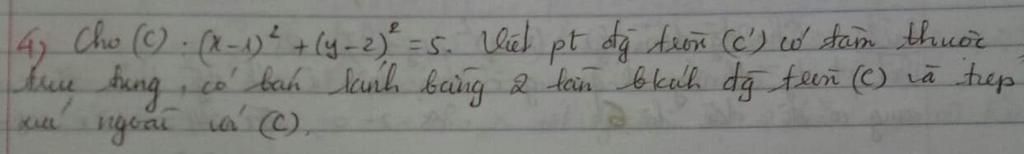 4) Cho (C) : (x-1)² + (y-2)² = 5. Viết pt đg tròn (C') có tâm thuộc
trục tung, có bán kính bằng 2 lần bkính đg tròn (C) và tiếp
xúc ngoài với (C).